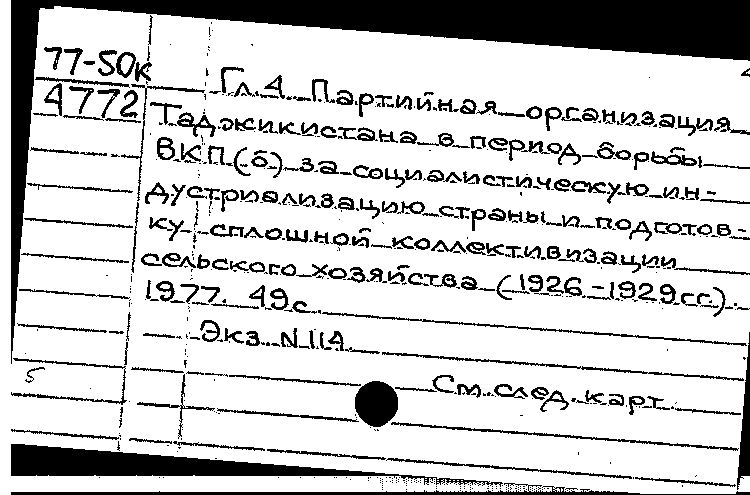 77-50к
4772
Гл.4. Партийная организация
Таджикистана в период борьбы
ВКП(б) за социалистическую ин-
дустриализацию страны и подготов-
ку сплошной коллективизации
сельского хозяйства (1926-1929гг.).
1977. 49с.
Экз. N 114.
5
См. след. карт.